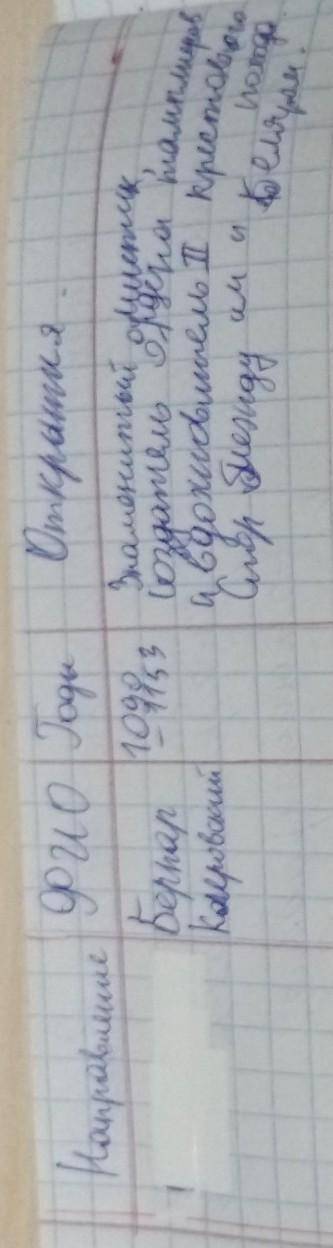 Направление ФИО Годы Открытия
Бернар
Клервоский
1090
- 1153
Знаменитый мистик,
Создатель ордена тамплиеров
и вдохновитель II крестового
похода.
Спор между им и Абеляром.